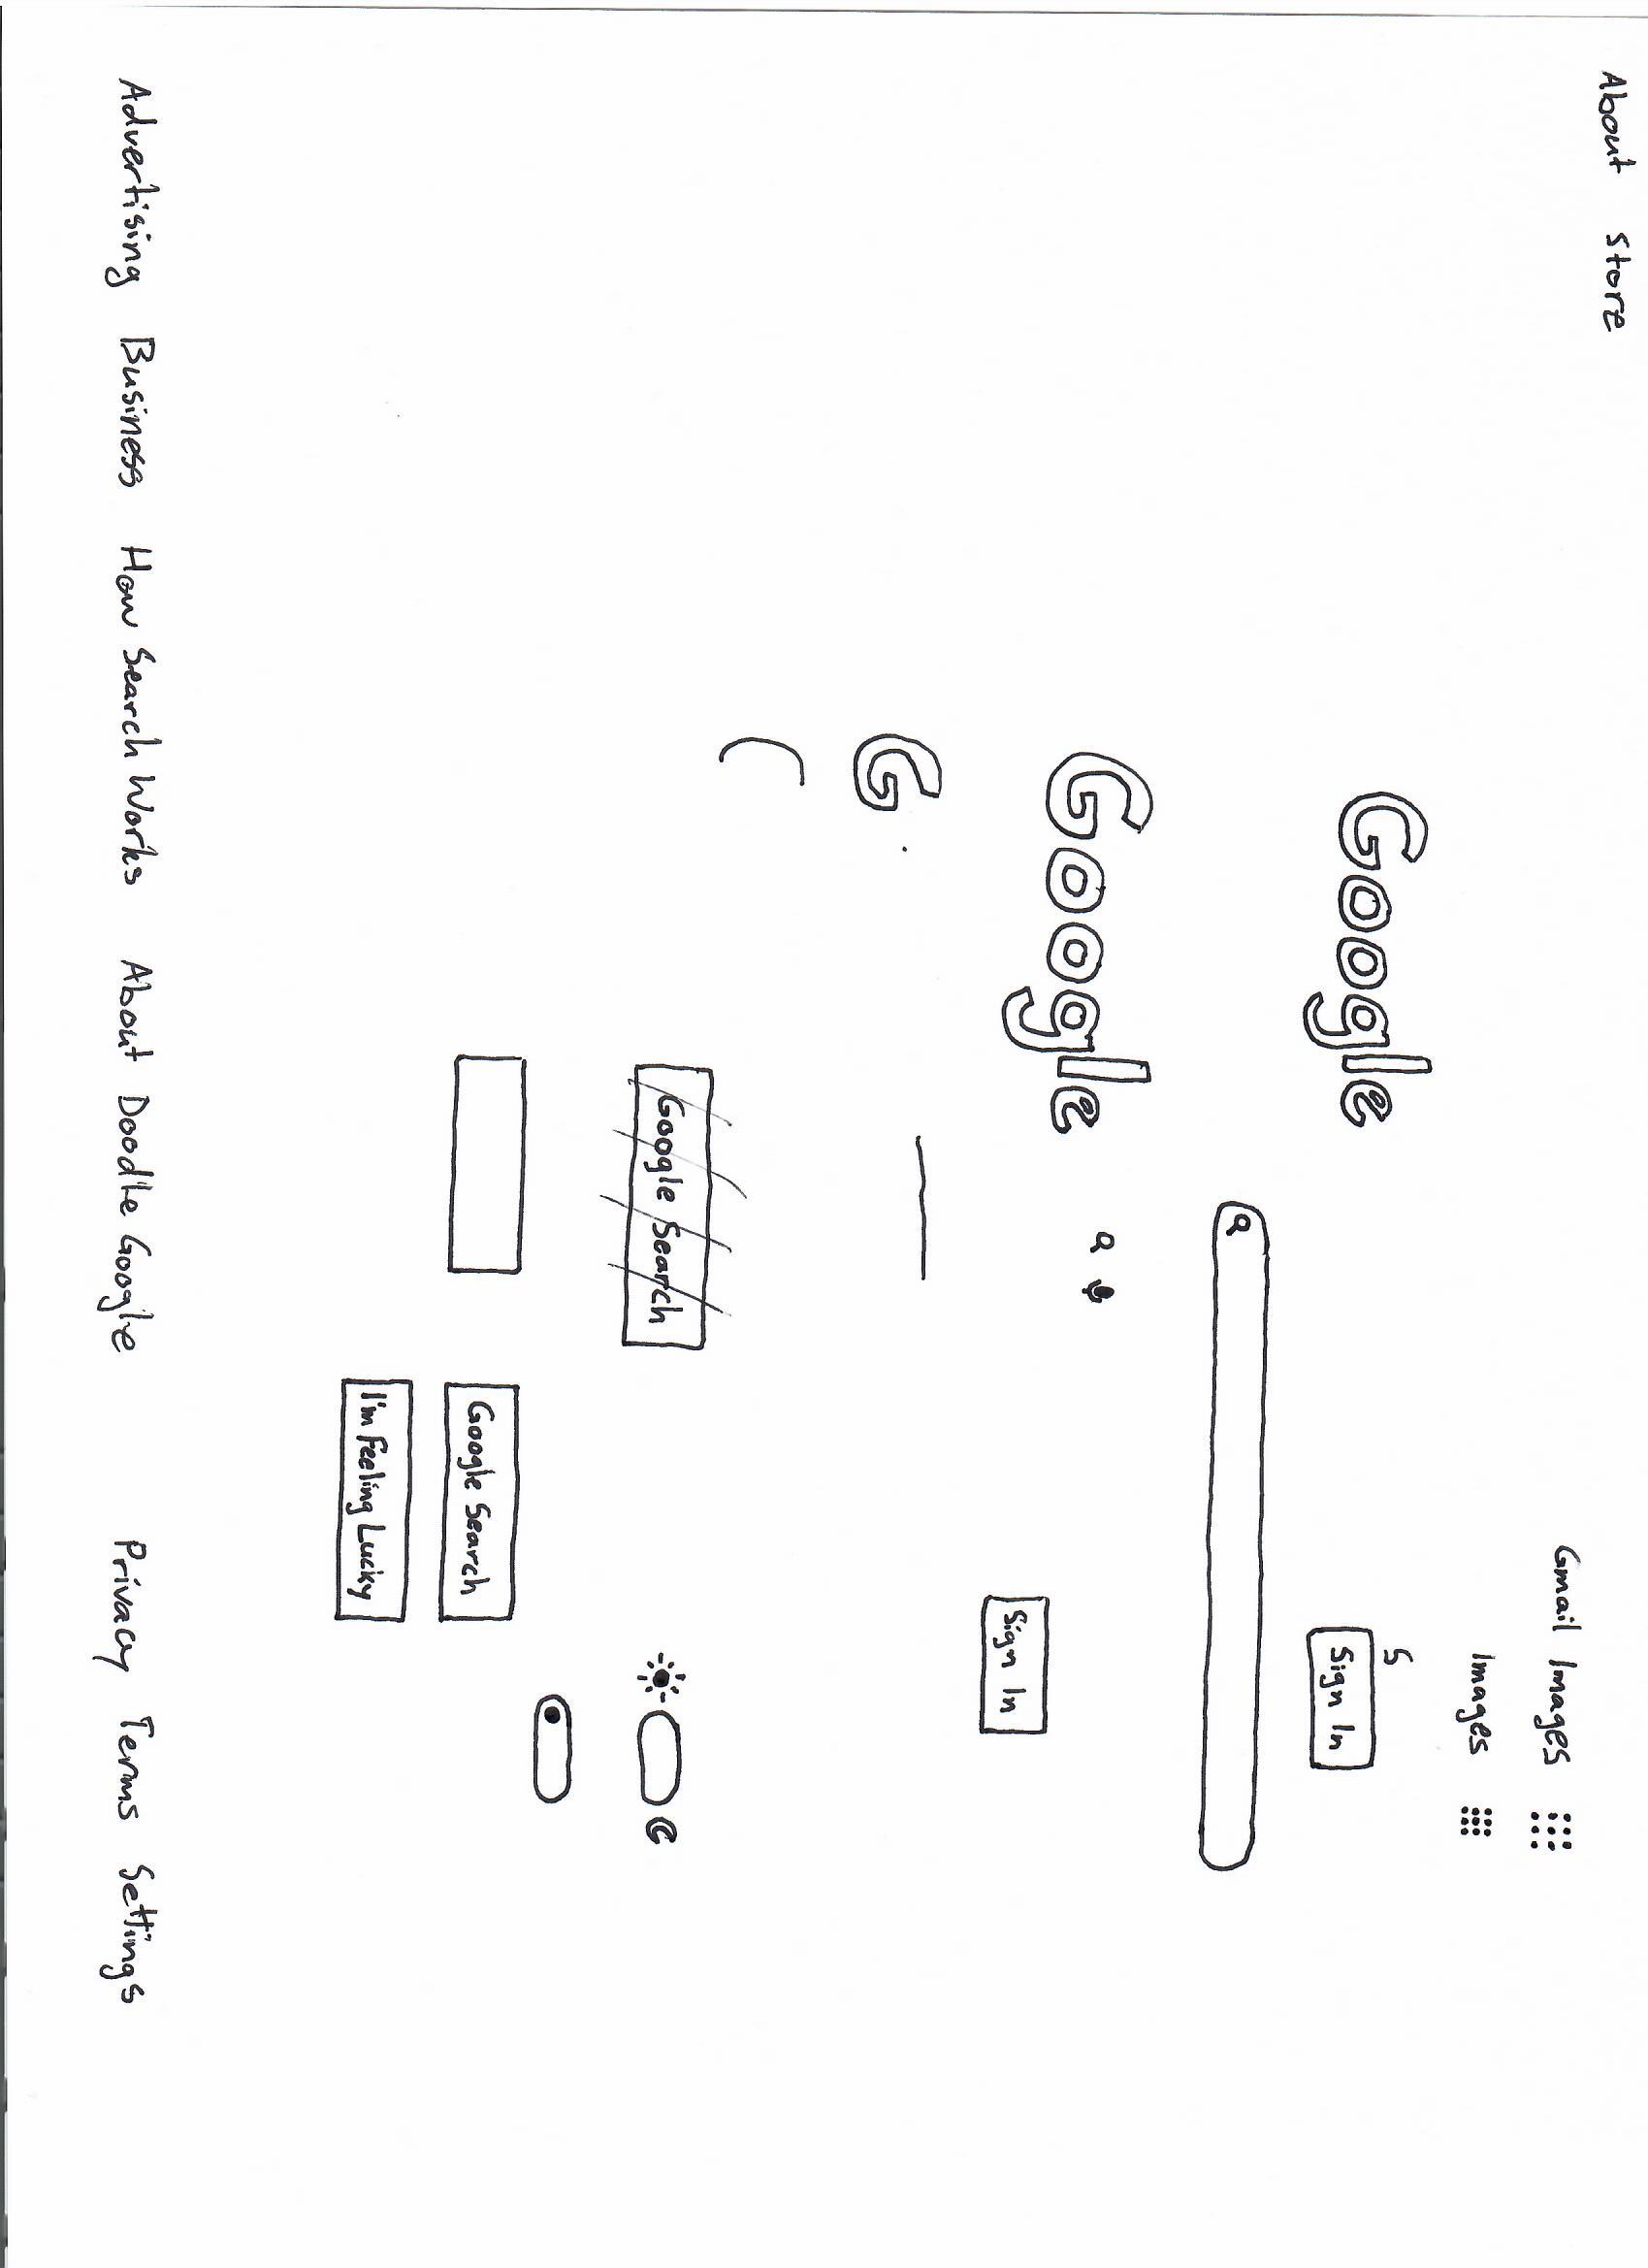 About Store
Gmail Images
Images
Google
S
Sign In
Google
Sign In
G
Google Search
Google Search
I'm Feeling Lucky
Advertising Business How Search Works About Doodle Google Privacy Terms Settings